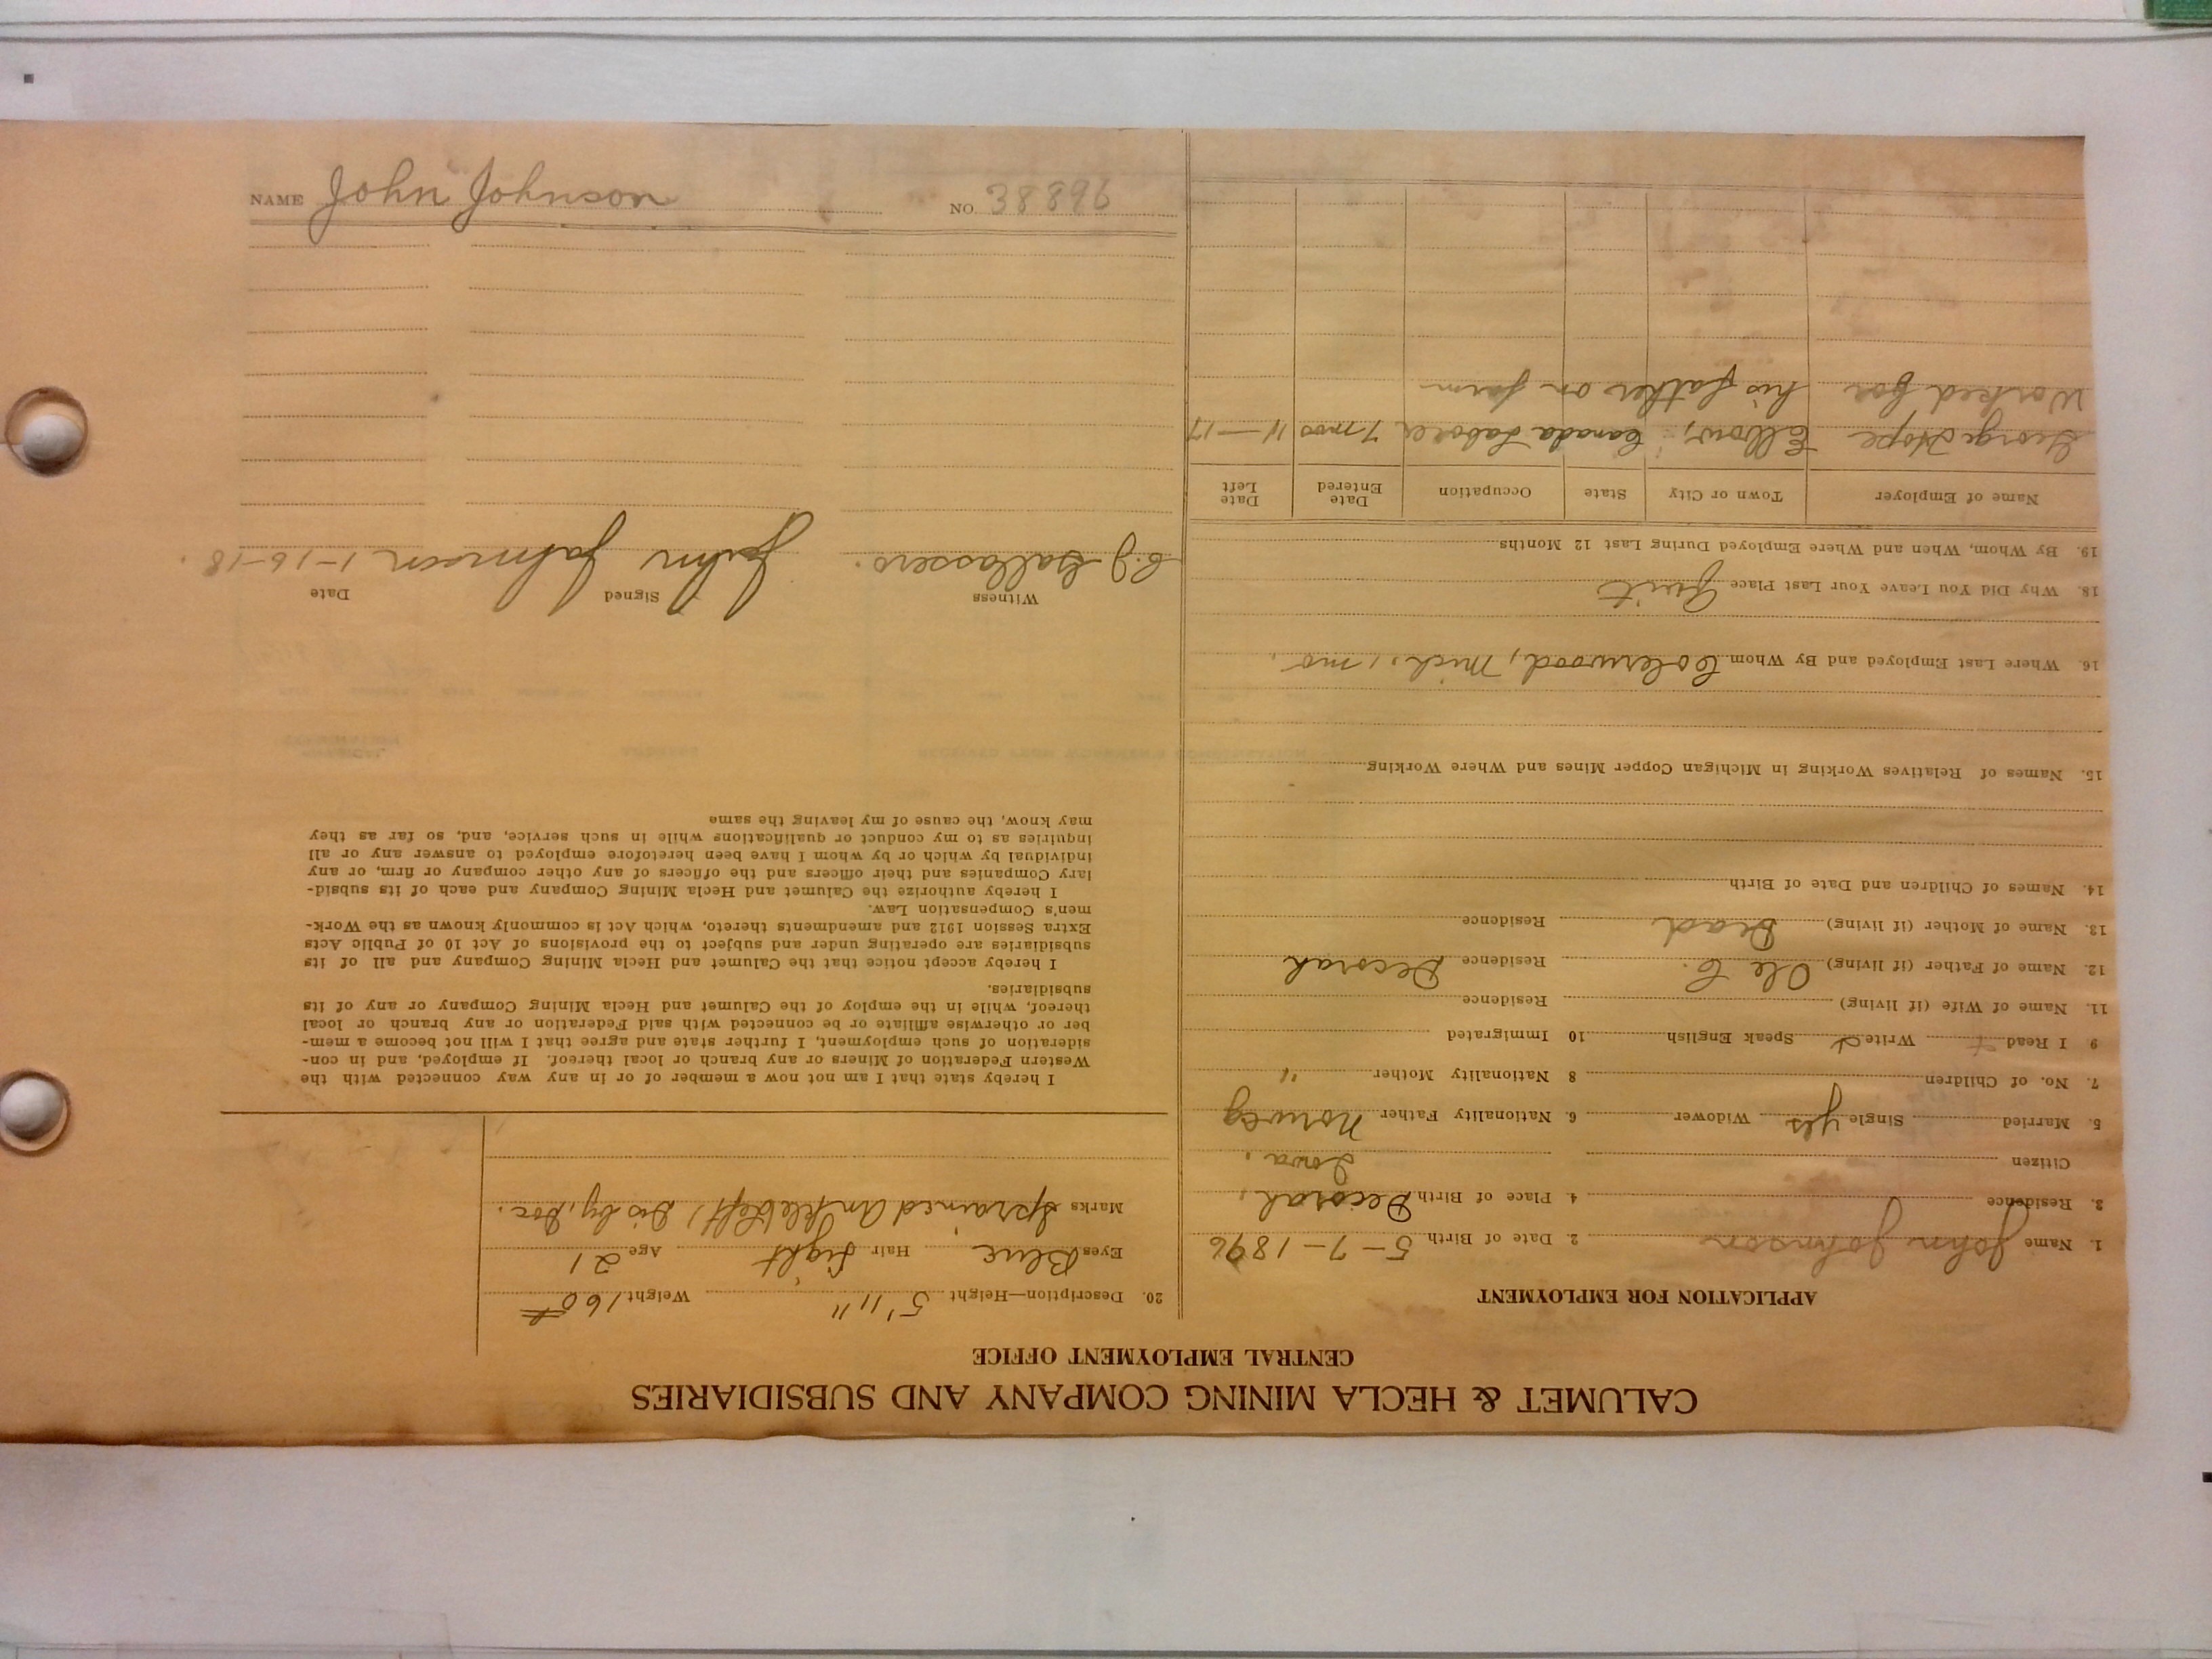 CALUMET & HECLA MINING COMPANY AND SUBSIDIARIES
CENTRAL EMPLOYMENT OFFICE
APPLICATION FOR EMPLOYMENT
1. Name John Johnson 2. Date of Birth 5-7-1896
3. Residence 4. Place of Birth Decorah,
Citizen Iowa.
5. Married Single yes Widower 6. Nationality Father Norweg
7. No. of Children 8 Nationality Mother "
9 I Read Write Speak English 10 Immigrated
11. Name of Wife (if living) Residence
12. Name of Father (if living) Ole C. Residence Decorah
13. Name of Mother (if living) Dead Residence
14. Names of Children and Date of Birth
15. Names of Relatives Working in Michigan Copper Mines and Where Working
16. Where Last Employed and By Whom Mich.,
18. Why Did You Leave Your Last Place Quit
19. By Whom, When and Where Employed During Last 12 Months
Name of Employer Town or City State Occupation Date Entered Date Left
George Hope Elbow, Canada Laborer 7 mos 11-17
Worked for his father on farm
20. Description—Height 5'11" Weight 160#
Eyes Blue Hair Light Age 21
Marks Sprained Ankle (Left)
I hereby state that I am not now a member of or in any way connected with the
Western Federation of Miners or any branch or local thereof. If employed, and in con-
sideration of such employment, I further state and agree that I will not become a mem-
ber or otherwise affiliate or be connected with said Federation or any branch or local
thereof, while in the employ of the Calumet and Hecla Mining Company or any of its
subsidiaries.
I hereby accept notice that the Calumet and Hecla Mining Company and all of its
subsidiaries are operating under and subject to the provisions of Act 10 of Public Acts
Extra Session 1912 and amendments thereto, which Act is commonly known as the Work-
men's Compensation Law.
I hereby authorize the Calumet and Hecla Mining Company and each of its subsid-
iary Companies and their officers and the officers of any other company or firm, or any
individual by which or by whom I have been heretofore employed to answer any or all
inquiries as to my conduct or qualifications while in such service, and, so far as they
may know, the cause of my leaving the same
Witness Signed Date
John Johnson 1-16-18
NAME John Johnson NO. 38896